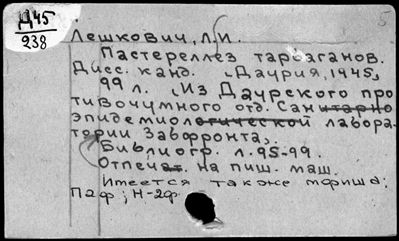 Д45
238
5
Лешкович, Л.И.
Пастереллез тарбаганов.
Дисс. канд. [Даурия, 1945]
99 л. [Из Даурского про
тивочумного отд. Санитарно
эпидемиологической лабора-
тории Забфронта].
Библиогр. л. 95-99.
Отпечат. на пиш. маш.
Имеется также мфиша:
Паф; Н-2ф.